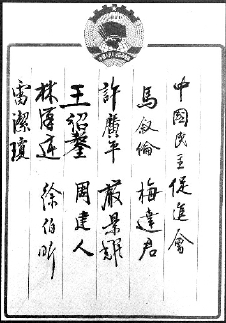 中國民主促進會
馬敘倫 梅達君
許廣平 嚴景耀
王紹鏊 周建人
林漢達 徐伯昕
雷潔瓊